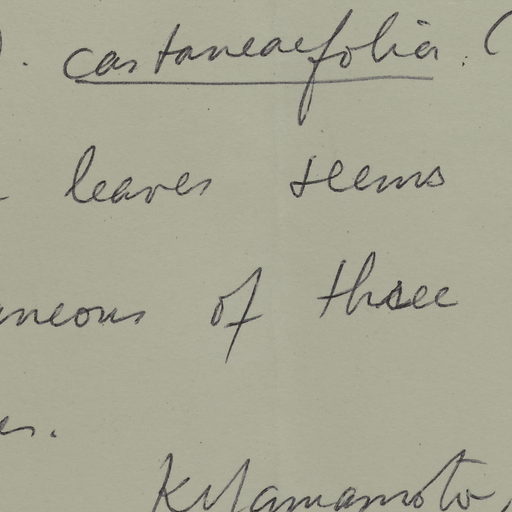 ). castaneaefolia. (
leaves seems
aneous of three
es.
K. Yamamoto,